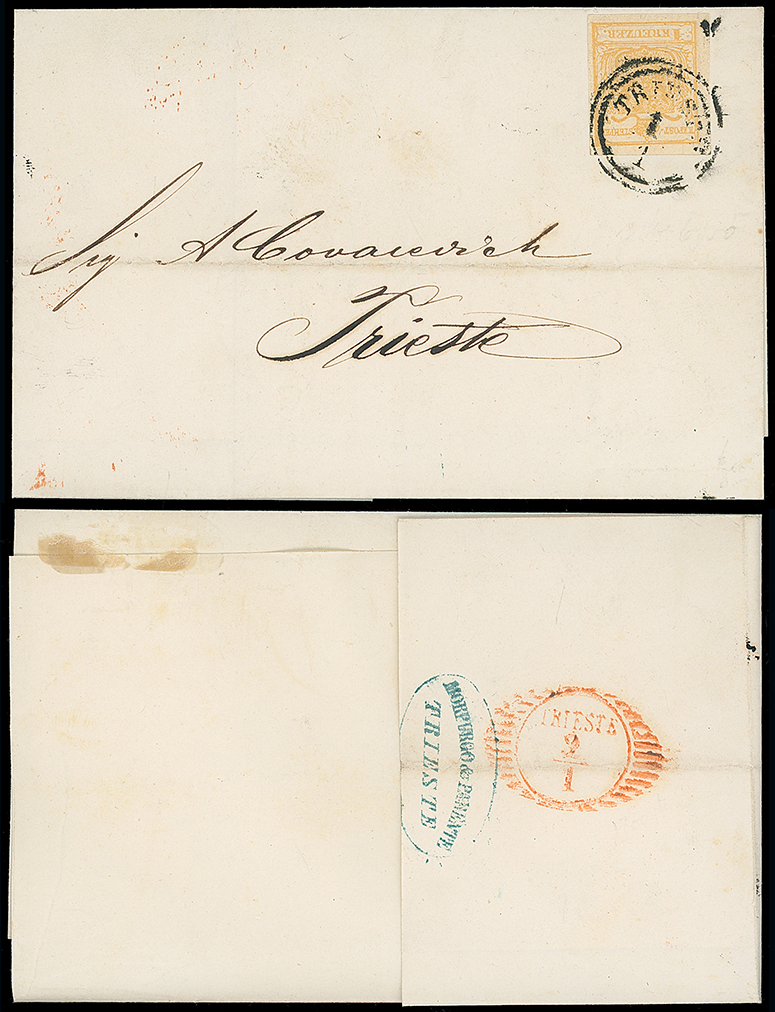 1 KREUZER.
TRIEST
1
1
Sig A Covacevich
Trieste
MORPURGO & PARENTE
TRIESTE
TRIESTE
2
1